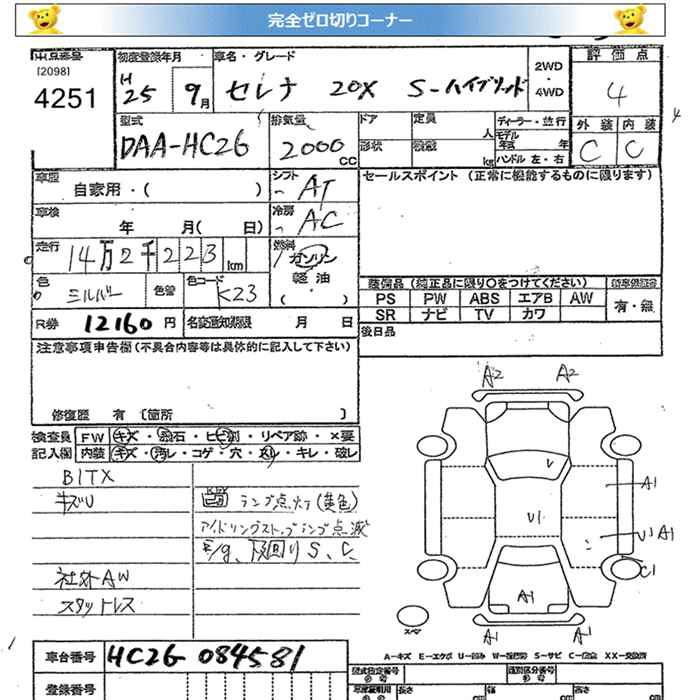 完全ゼロ切りコーナー
出品番号 初度登録年月 車名・グレード 2WD ・ 4WD 評価点
[2098]
4251 H25 9月 セレナ 20X S-ハイブリッド 4
型式 排気量 ドア 定員 人 ディーラー・並行 外装 内装
DAA-HC26 2000cc 形状 積載 kg モデル年式 年 ハンドル 左・右 C C
車歴 自家用・( ) シフト AT セールスポイント (正常に機能するものに限ります)
車検 年 月( 日) 冷房 AC
走行 14万2千223km 燃料 ガソリン
色 シルバー 色替 色コード K23 軽油 ・( )
装備品 (純正品に限り〇をつけてください)
PS PW ABS エアB AW 有・無
SR ナビ TV カワ
R券 12160円 名変通知期限 月 日 後日品
注意事項申告欄(不具合内容等は具体的に記入して下さい)
修復歴 有 [箇所 ]
A2 A2
検査員 FW キズ・飛石・ヒビ割・リペア跡・×要
記入欄 内装 キズ・汚レ・コゲ・穴・スレ・キレ・破レ
BITX
キズU ランプ点灯(黄色)
アイドリングストップランプ点滅
E/g、下回りS、C
社外AW
スタットレス
V
A1
U1
U1 A1
C1
A1
スペア
A1 A1
車台番号 HC26-084581
A-キズ E-エクボ U-凹み W-補修跡 S-サビ C-腐食 XX-交換済
登録番号 型式指定番号 類別区分番号
長さ 幅 高さ